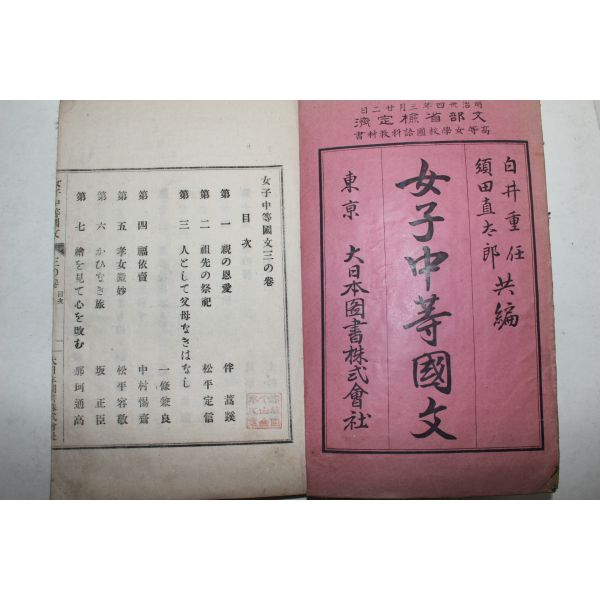 明治卅四年三月廿二日
文部省檢定濟
高等女學校國語科教科書
白井重任
須田直太郎
共編
女子中等國文
東京 大日本圖書株式會社
女子中等國文三の卷
目次
第一 親の恩愛 伴蒿蹊
第二 祖先の祭祀 松平定信
第三 人として父母なきはなし 一條兼良
第四 福依賣 中村惕齋
第五 孝女 松平容敬
第六 かひなき旅 坂正臣
第七 繪を見て心を改む 那珂通高
女子中等國文 三の卷 目次 一